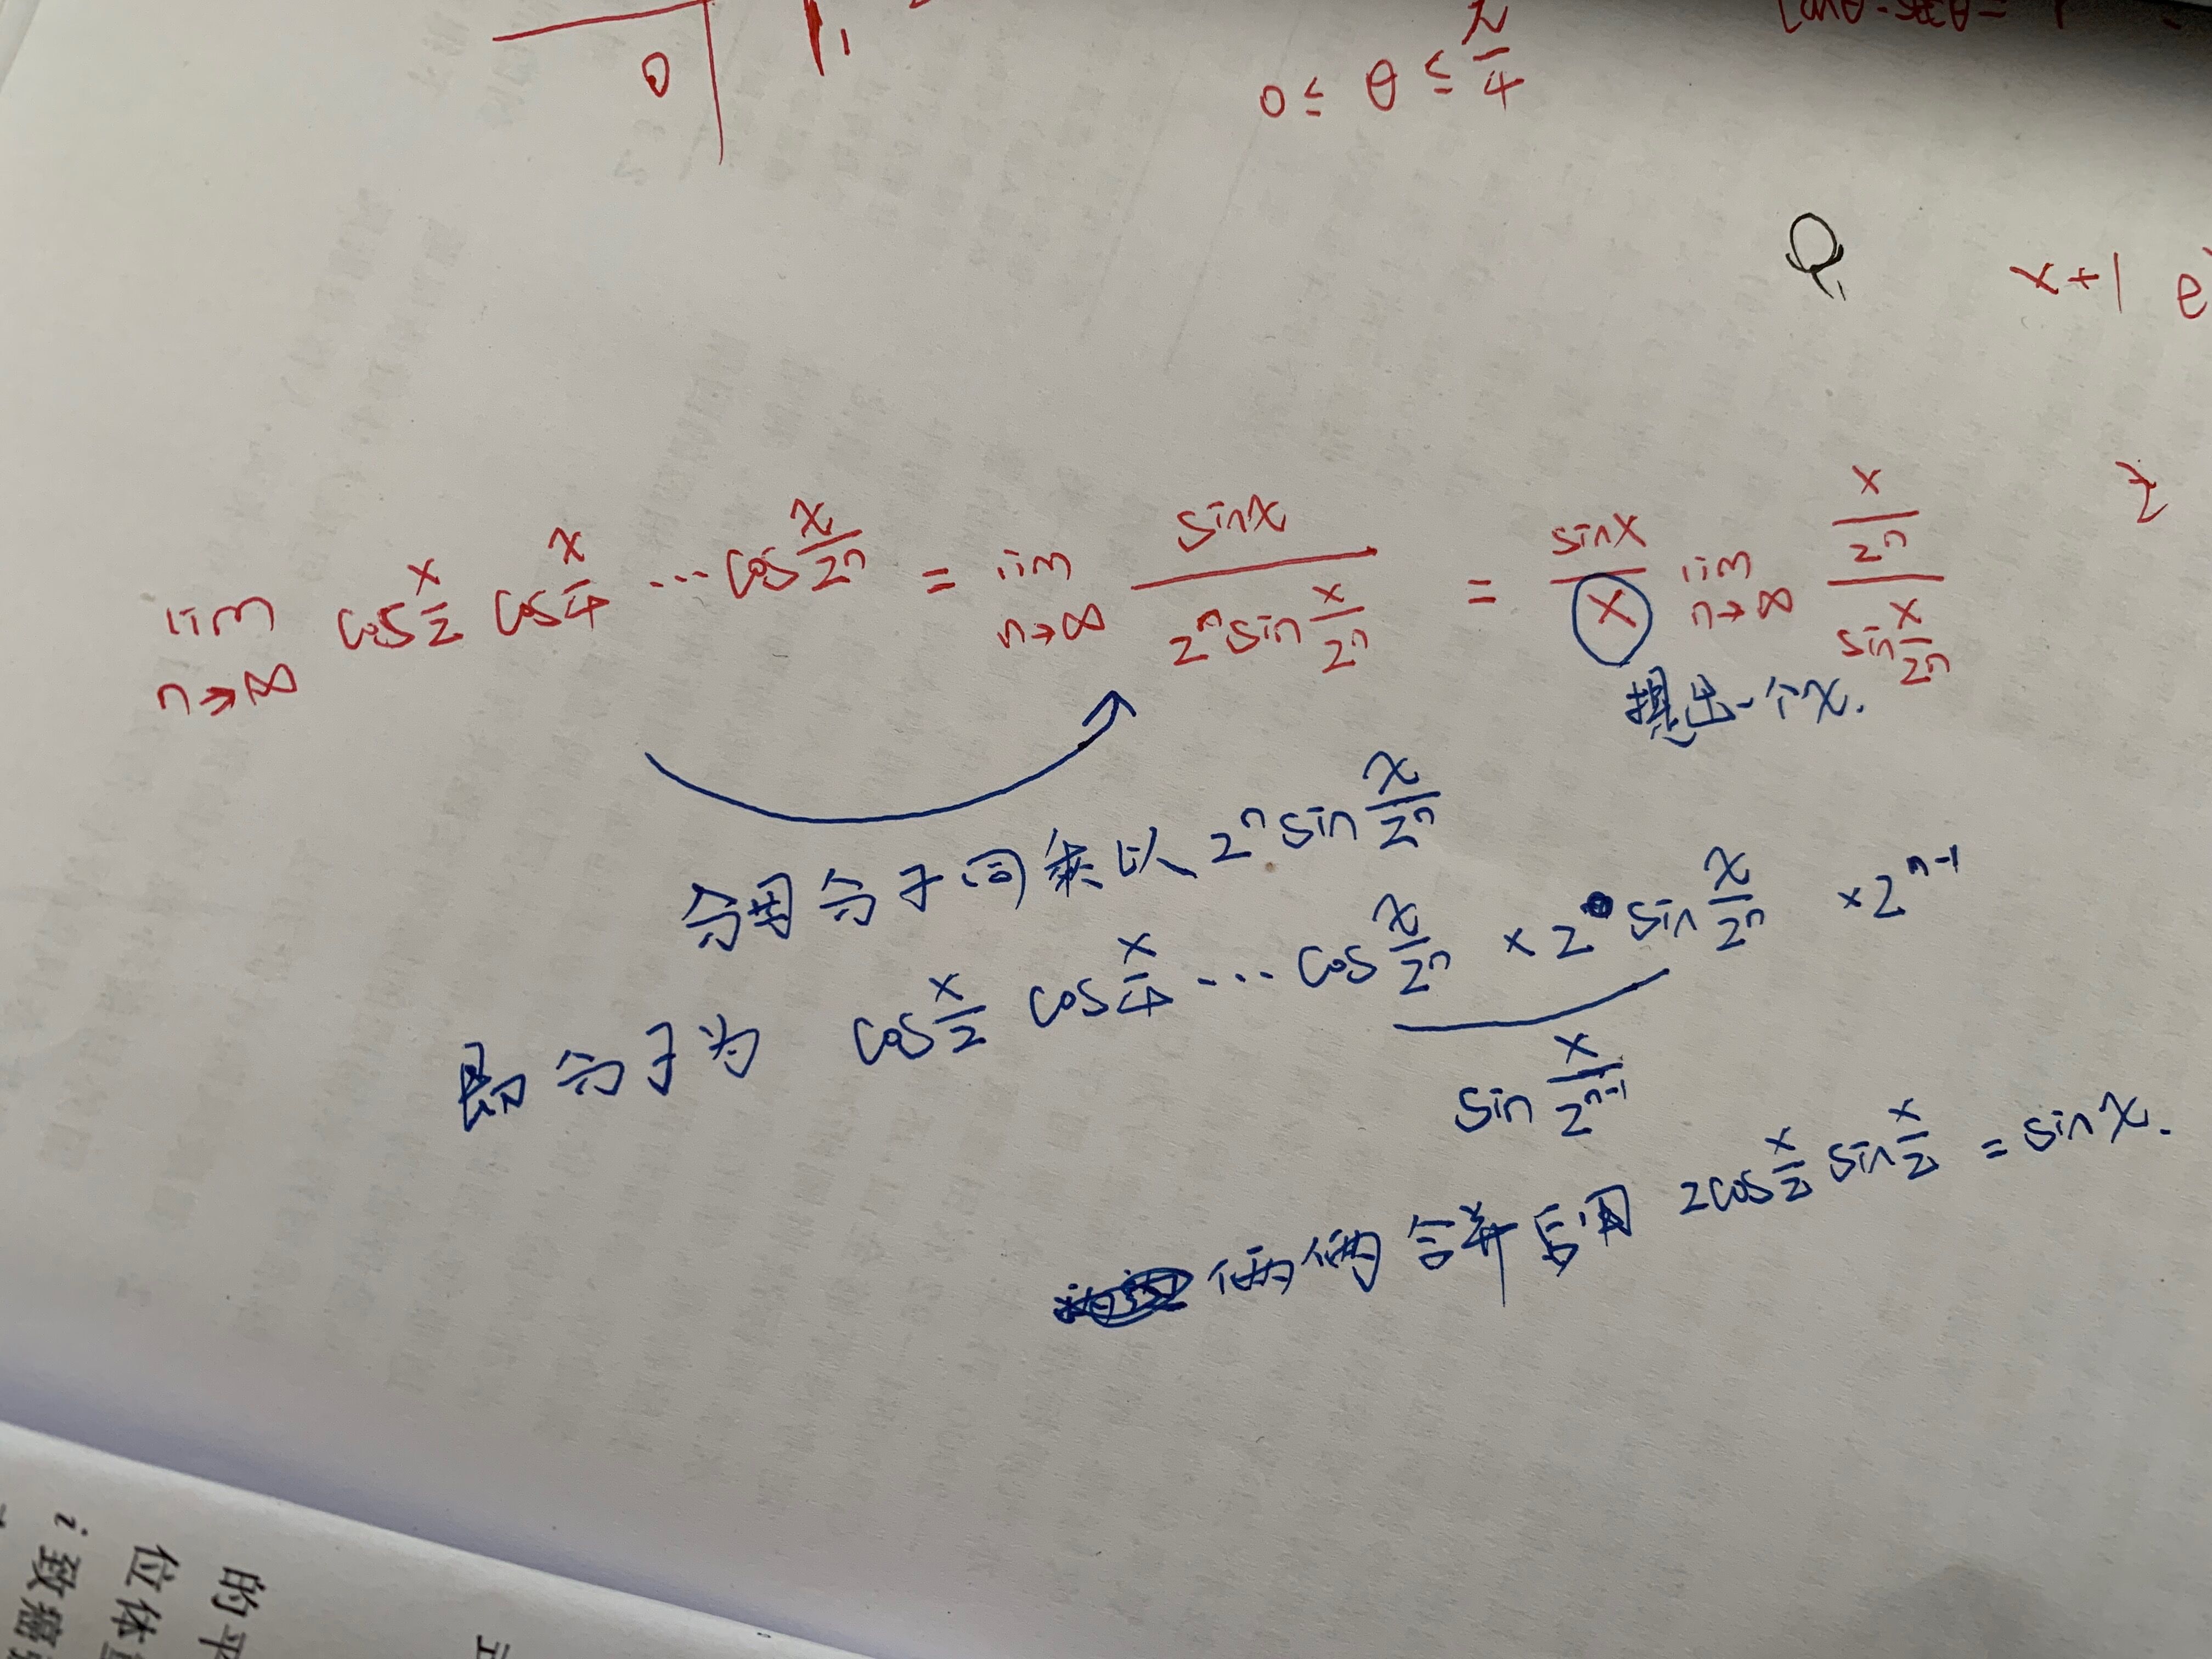 0
0 ≤ θ ≤ π/4
x+1 e
lim n→∞ cos x/2 cos x/4 ... cos x/2ⁿ = lim n→∞ sinx / 2ⁿ sin x/2ⁿ = sinx / x lim n→∞ x/2ⁿ / sin x/2ⁿ
提出一个x.
分母分子同乘以 2ⁿ sin x/2ⁿ
即分子为 cos x/2 cos x/4 ... cos x/2ⁿ × 2 sin x/2ⁿ × 2ⁿ⁻¹
sin x/2ⁿ⁻¹
俩俩合并后用 2cos x/2 sin x/2 = sin x.
的平
位体
i 致